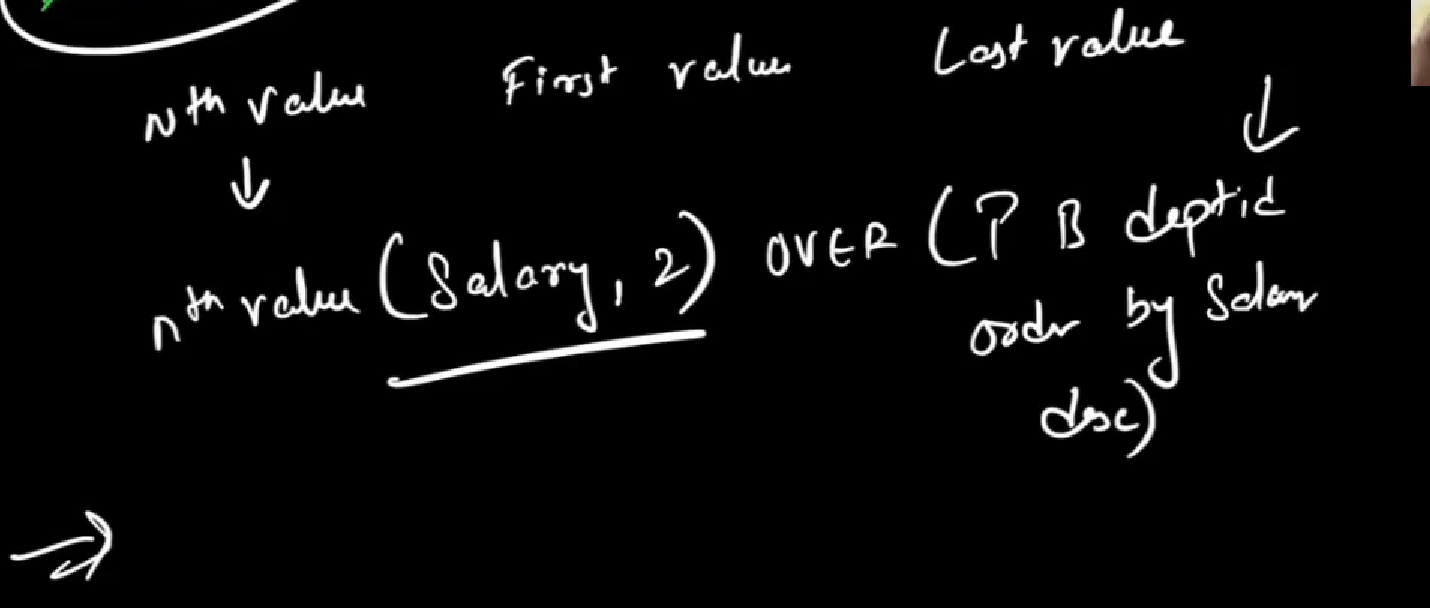 Nth value First value Last value
nth value (Salary, 2) OVER (P B deptid
order by Salary
desc)